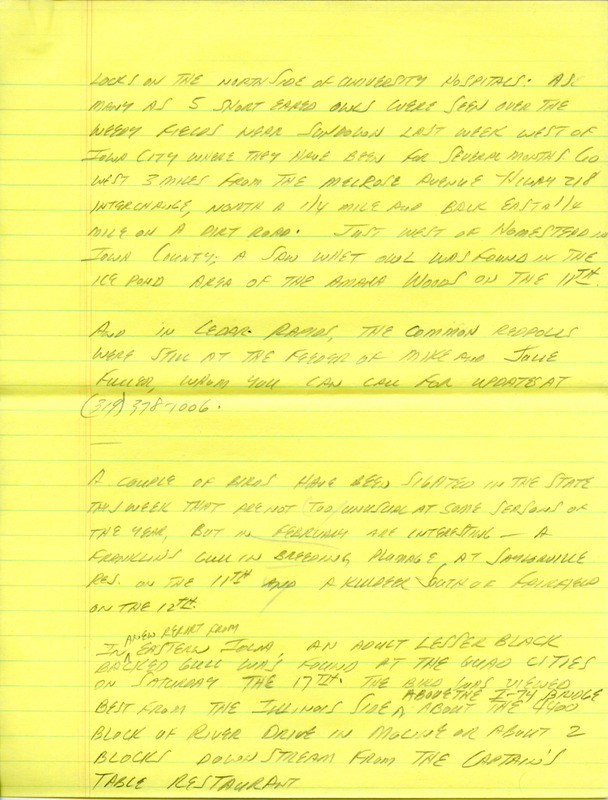 LOCKS ON THE NORTH SIDE OF UNIVERSITY HOSPITALS. AS
MANY AS 5 SHORT EARED OWLS WERE SEEN OVER THE
WEEDY FIELDS NEAR SUNDOWN LAST WEEK WEST OF
IOWA CITY WHERE THEY HAVE BEEN FOR SEVERAL MONTHS GO
WEST 3 MILES FROM THE MELROSE AVENUE - HIWAY 218
INTERCHANGE, NORTH A 1/4 MILE AND BACK EAST A 1/4
MILE ON A DIRT ROAD. JUST WEST OF HOMESTEAD IN
IOWA COUNTY, A SAW WHET OWL WAS FOUND IN THE
ICE POND AREA OF THE AMANA WOODS ON THE 11TH.
AND IN CEDAR RAPIDS, THE COMMON REDPOLLS
WERE STILL AT THE FEEDER OF MIKE AND JULIE
FULLER, WHOM YOU CAN CALL FOR UPDATES AT
(319) 378-1006.
—
A COUPLE OF BIRDS HAVE BEEN SIGHTED IN THE STATE
THIS WEEK THAT ARE NOT TOO UNUSUAL AT SOME SEASONS OF
THE YEAR, BUT IN FEBRUARY ARE INTERESTING — A
FRANKLINS GULL IN BREEDING PLUMAGE AT SAYLORVILLE
RES. ON THE 11TH AND A KILLDEER SOUTH OF FAIRFIELD
ON THE 12TH.
A NEW REPORT FROM
IN EASTERN IOWA, AN ADULT LESSER BLACK
BACKED GULL WAS FOUND AT THE QUAD CITIES
ON SATURDAY THE 17TH. THE BIRD WAS VIEWED
ABOVE THE I-74 BRIDGE
BEST FROM THE ILLINOIS SIDE, ABOUT THE 4400
BLOCK OF RIVER DRIVE IN MOLINE OR ABOUT 2
BLOCKS DOWNSTREAM FROM THE CAPTAIN'S
TABLE RESTAURANT